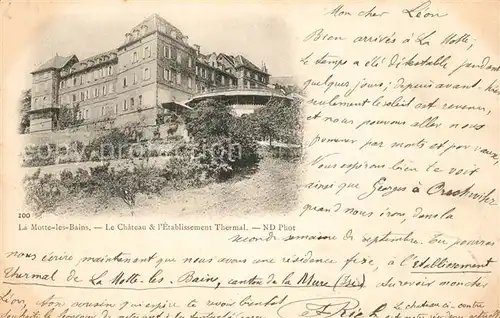 Mon cher Léon
Bien arrivés à La Motte,
le temps a été détestable pendant
quelques jours; depuis avant hier
seulement le soleil est revenu,
et nous pouvons aller nous
promener par monts et par vaux.
Nous espérons bien le voir
ainsi que Georges à
quand nous irons dans la
100
La Motte-les-Bains. — Le Château & l'Établissement Thermal. — ND Phot
seconde semaine de septembre. Tu pourras
nous écrire maintenant que nous avons une résidence fixe, à l'établissement
Thermal de La Motte-les-Bains, canton de la Mure (Isère) au revoir mon cher
Léon, ton cousin qui espère te revoir bientôt
Le château ci-contre